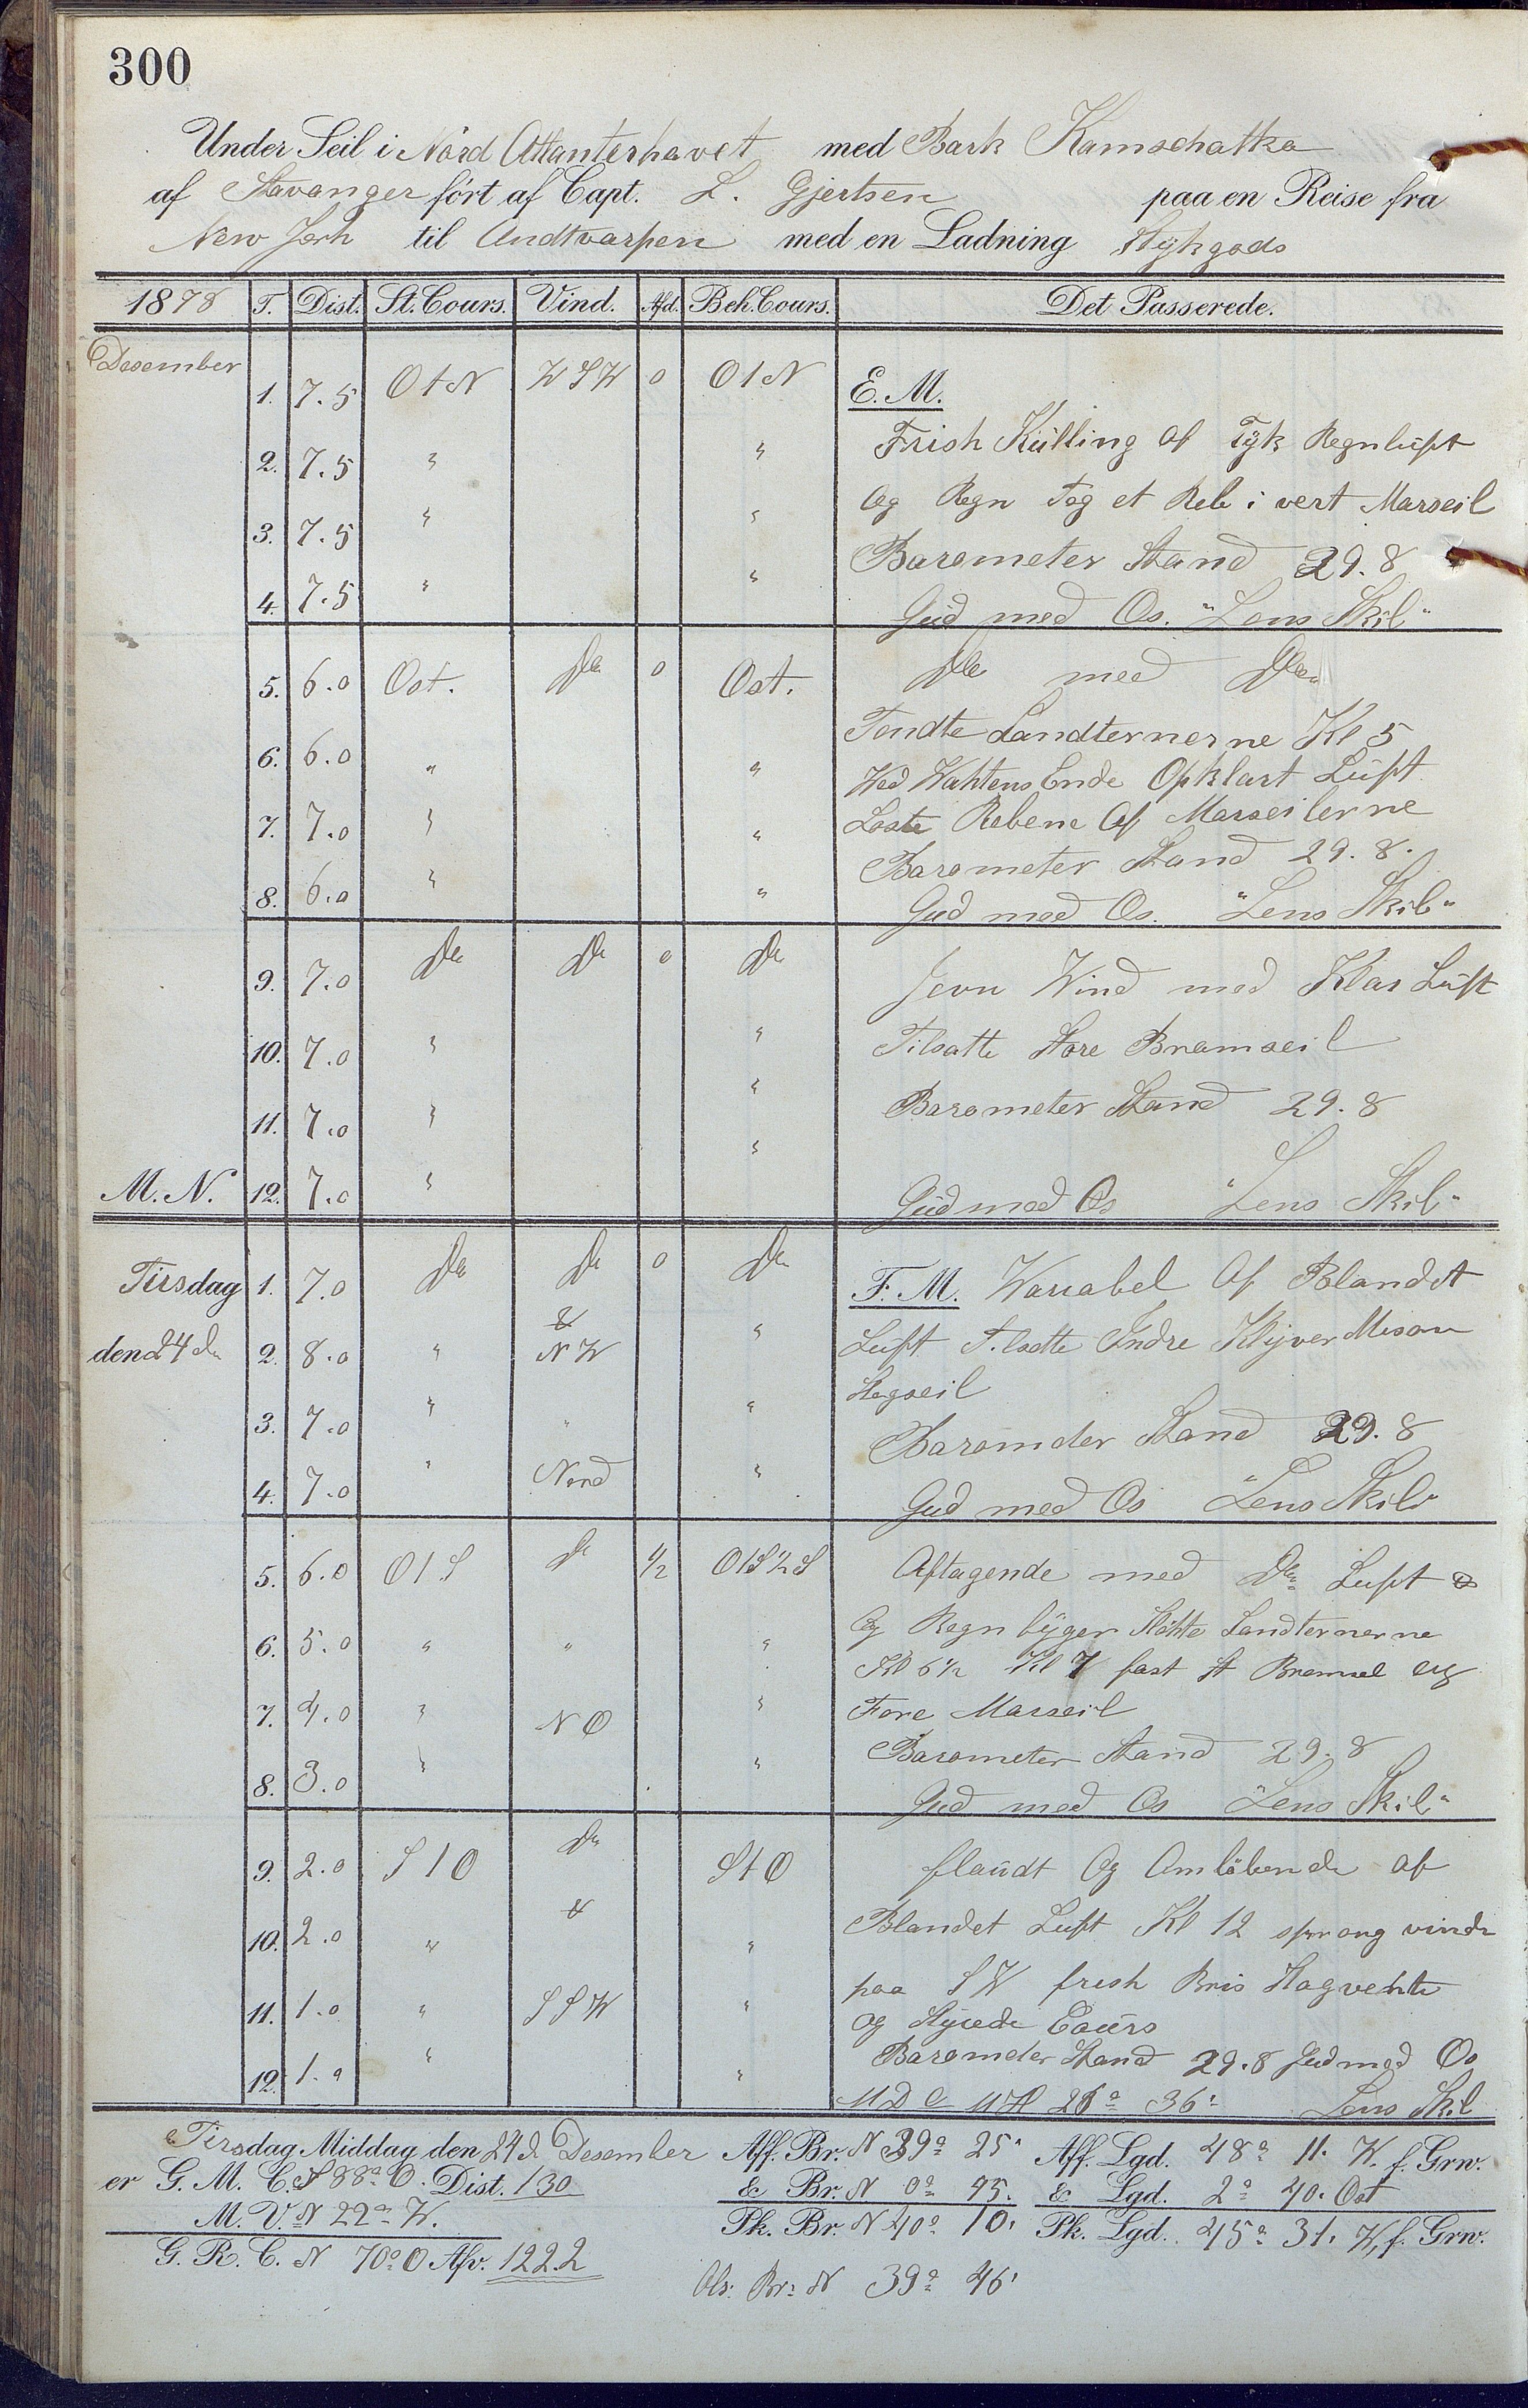 300
Under Seil i Nord Atlanterhavet med Bark Kamschatka
af Stavanger ført af Capt. L. Gjertsen paa en Reise fra
New Jork til Andtvarpen med en Ladning Stykgods
1878 T. Dist. St. Cours. Vind. Afd. Beh. Cours. Det Passerede.
Desember
1. 7.5 O t N W S W 0 O t N E. M.
2. 7.5 " " Frish Külling Af Tyk Regnlüft
3. 7.5 " " Og Regn Tog et Reb i vert Marseil
4. 7.5 " " Barometer Stand 29.8
Güd med Os. "Lens Skib"
5. 6.0 Ost. Do 0 Ost. Do med Do
6. 6.0 " " Tendte Landternerne Kl 5
Wed Wahtens Ende Opklart Lüft
7. 7.0 " " Loste Rebene Af Marseilerne
8. 6.0 " " Barometer Stand 29.8.
Gud med Os. "Lens Skib"
9. 7.0 Do Do 0 Do Jevn Wind med Klar Lüft
10. 7.0 " " Tilsatte Store Bramseil
11. 7.0 " " Barometer Stand 29.8
M. N. 12. 7.0 " " Güd med Os "Lens Skib"
Tirsdag 1. 7.0 Do Do 0 Do F. M. Wariabel Af Blandet
den 24 de 2. 8.0 " & N W " Lüft Tilsatte Indre Klyver Mesan
Stagseil
3. 7.0 " " " Baromder Stand 29.8
4. 7.0 " Nord " Gud med Os "Lens Skib"
5. 6.0 O t S Do 1/2 O t S 1/2 S Aftagende med Do Luft
6. 5.0 " " " Og Regn byger Slökte Landternerne
Kl 6 1/2 Kl 7 fast St Bramsel og
7. 4.0 " N O " Fore Marseil
8. 3.0 " " Barometer Stand 29.8
Gud med Os "Lens Skib"
9. 2.0 S t O Do S t O flaudt Og Omlöbende af
10. 2.0 " & " Blandet Luft Kl 12 sprang vinde
11. 1.0 " S S W " paa S W fresh Bris Stagvente
og Styrede Cours
12. 1.0 " " Baromder Stand 29.8 Gud med Os
36' Lens Skib
Tirsdag Middag den 24 d Desember Aff. Br. N 39° 25' Aff. Lgd. 48° 11. W. f. Grw.
er G. M. C. S 88° O. Dist. 130 & Br. N 0° 45. & Lgd. 2° 40. Ost
M. V. N 22° W. Pk. Br. N 40° 10' Pk. Lgd. 45° 31. W. f. Grw.
G. R. C. N 70° O Afv. 122.2
Obs: Br: N 39° 46'